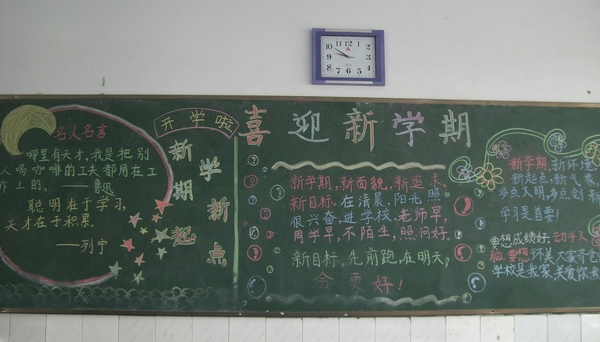 10 11 12 1 2 3 4 5 6 7 8 9
开学啦
喜迎新学期
名人名言
哪里有天才,我是把别
人喝咖啡的工夫都用在工
作上的。——鲁迅
聪明在于学习,
天才在于积累。
——列宁
新期起
学新点
新学期,新面貌,新追求,
新目标,在清晨,阳光照,
很兴奋,进学校,老师早,
同学早,不陌生,照问好,
新目标,先前跑,在明天,
今更好!
新学期,新环境
新起点,新代表,
多点文明,多点创新
学习是首要!
要想成绩好,动手又
脑,要想环美大家
学校是我家,关爱你我